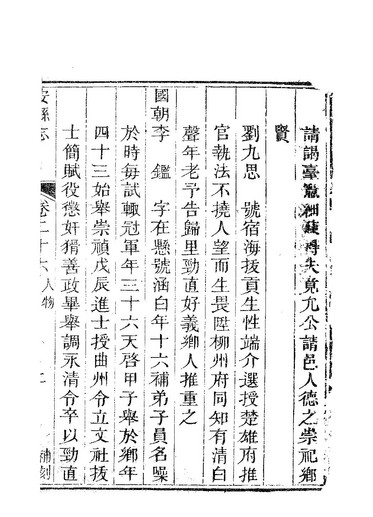 請謁臺憲細蘇得失竟允公請邑人德之崇祀鄉
賢
劉九思　號宿海拔貢生性端介選授楚雄府推
官執法不撓人望而生畏陞柳州府同知有清白
聲年老予告歸里勁直好義鄉人推重之
國朝李　鑑　字在懸號涵白年十六補弟子員名噪
於時每試輒冠軍年三十六天啓甲子舉於鄉年
四十三始舉崇禎戊辰進士授曲州令立文社拔
士簡賦役懲奸猾善政畢舉調永清令卒以勁直
安縣志
卷二十六　人物
補刻